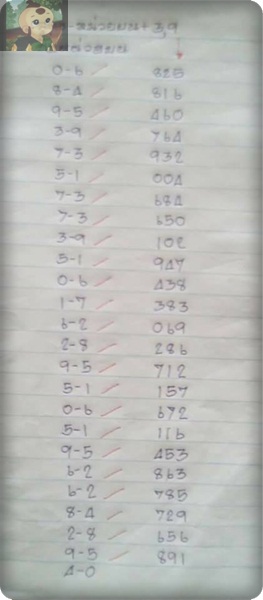 -หน่วยบน+3,9
0-6 825
8-4 816
9-5 460
3-9 764
7-3 932
5-1 004
7-3 684
7-3 650
3-9 102
5-1 947
0-6 438
1-7 383
6-2 069
2-8 286
9-5 712
5-1 157
0-6 672
5-1 116
9-5 453
6-2 863
6-2 785
8-4 729
2-8 656
9-5 891
4-0